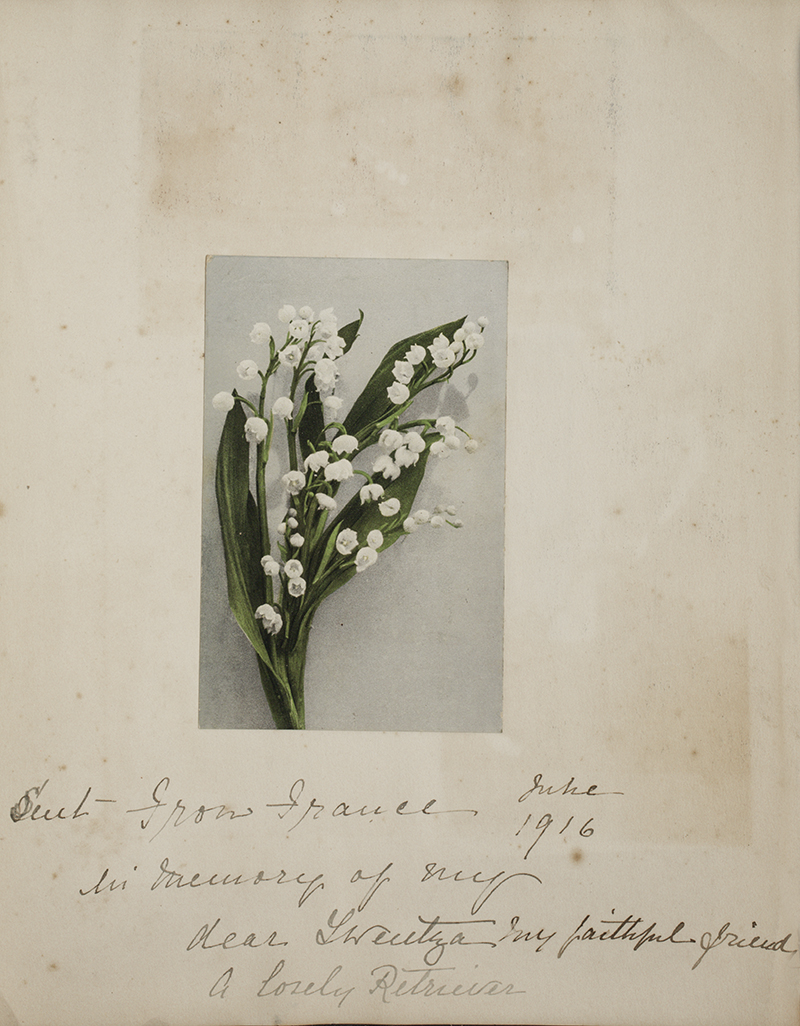 Sent From France June
1916
In memory of my
dear my faithful friend
A lovely Retriever